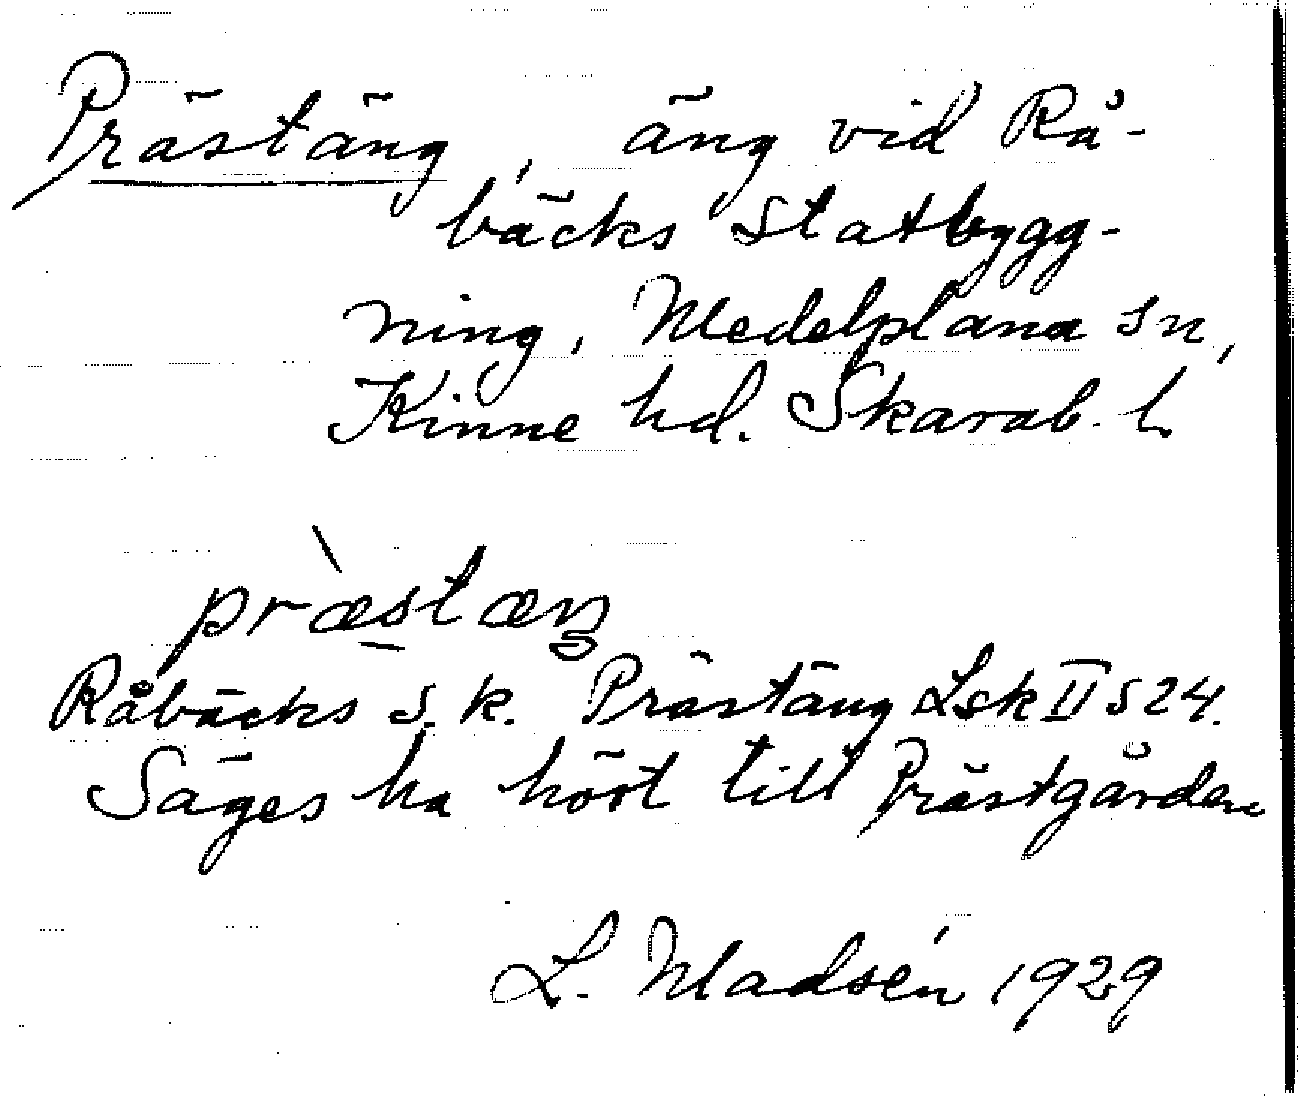 Prästäng, äng vid Rå-
bäcks Statbygg-
ning, Medelplana sn,
Kinne hd. Skarab. l.
præ̀stæŋ
Råbäcks s.k. Prästäng Lsk II S 24.
Säges ha hört till Prästgården
L. Madsén 1929